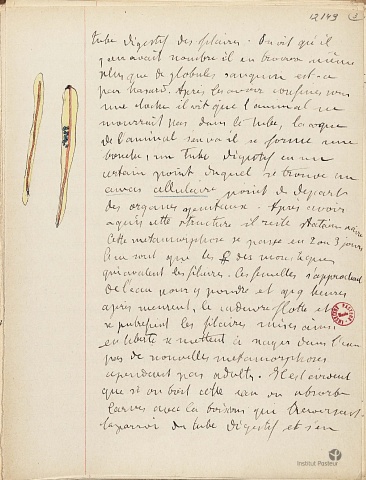 12143 (3
tube digestif des filaires. On voit qu'il
y en avait nombre il en trouva même
plus que de globules sanguins est-ce
par hasard. Après les avoir confinés sous
une cloche il voit que l'animal ne
mourrait pas dans le tube, la coque
de l'animal servait se forme une
bouche, un tube digestif en un
certain point duquel se trouve un
amas cellulaire point de départ
des organes génitaux. Après avoir
acquis cette structure il reste stationnaire
Cette métamorphose se passe en 2 ou 3 jours
Ce ne sont que les F des moustiques
qui avalent les filaires. Ces femelles s'approchent
de l'eau pour y pondre et qq heures
après meurent, le cadavre flotte et
se putréfient les filaires mises ainsi
en liberté se mettent à nager dans l'eau
pas de nouvelles métamorphoses
cependant pas adultes. Il est évident
que si on boit cette eau on absorbe
larves avec la boisson qui traversent
la paroi du tube digestif et s'en
INSTITUT PASTEUR
Institut Pasteur